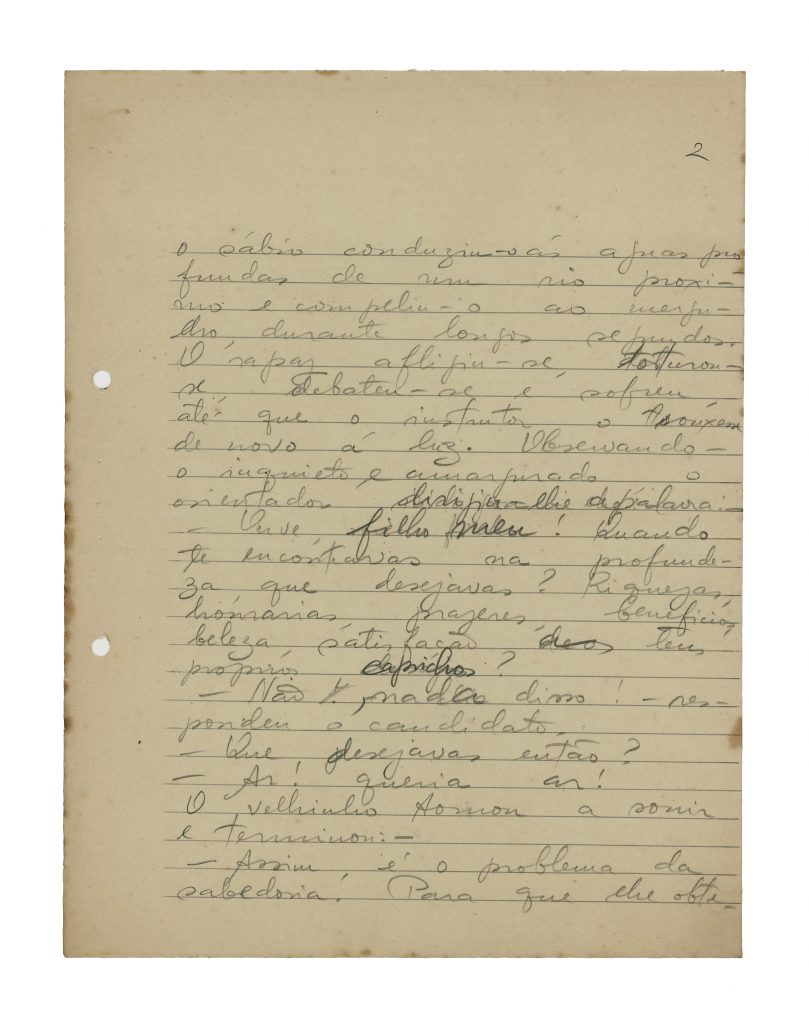 2
o sábio conduziu-o ás aguas pro
fundas de um rio proxi-
mo e compeliu-o ao mergu-
lho, durante longos segundos.
O rapaz afligiu-se, torturou-
se debateu-se e sofreu
até que o instrutor o trouxesse
de novo á luz. Observando-
o inquieto e amargurado o
orientador dirigiu-lhe a palavra:-
- Ouve, filho meu! Quando
te encontravas na profunde-
za que desejavas? Riquezas,
honrarias prazeres, beneficios,
beleza satisfação dos teus
proprios caprichos?
- Não!, nada disso! - res-
pondeu o candidato.
- Que desejavas então?
- Ar! queria ar!
O velhinho tornou a sorrir
e terminou:-
- Assim é o problema da
sabedoria! Para que ele obte-